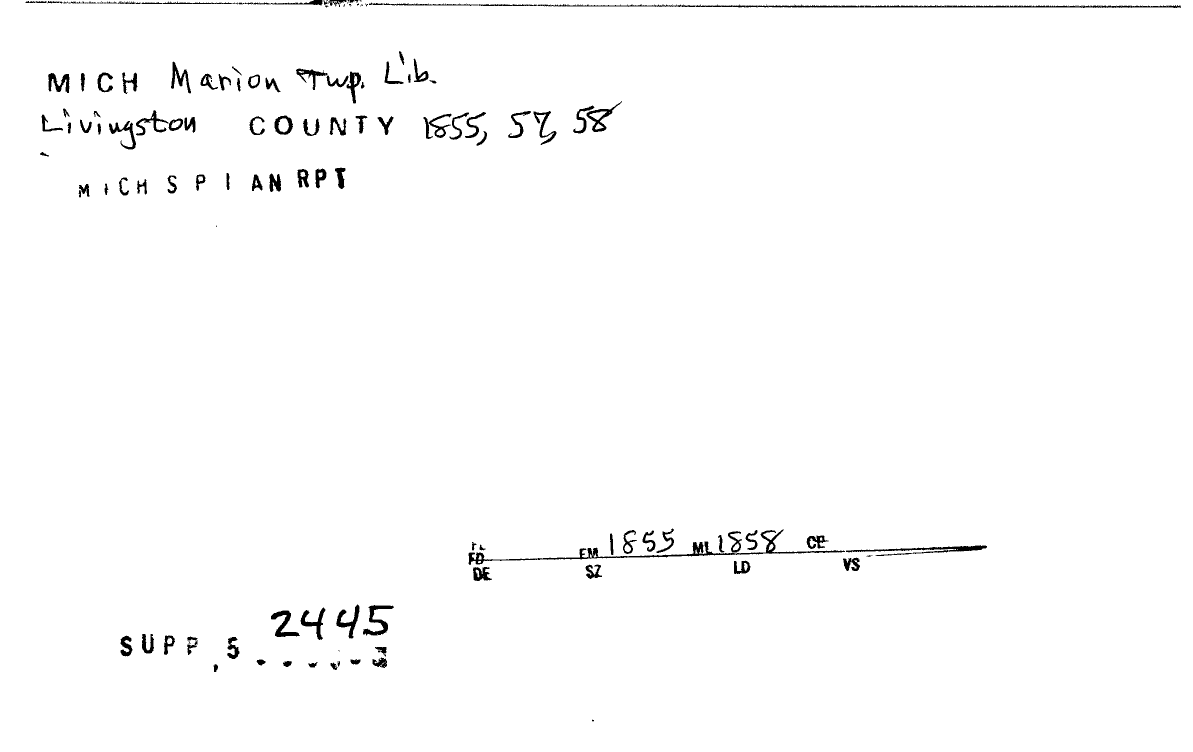 MICH Marion Twp. Lib.
Livingston COUNTY 1855, 57, 58
MICH S P I AN RPT
FD FM 1855 ML 1858 CP
DE SZ LD VS
2445
SUPP, 5